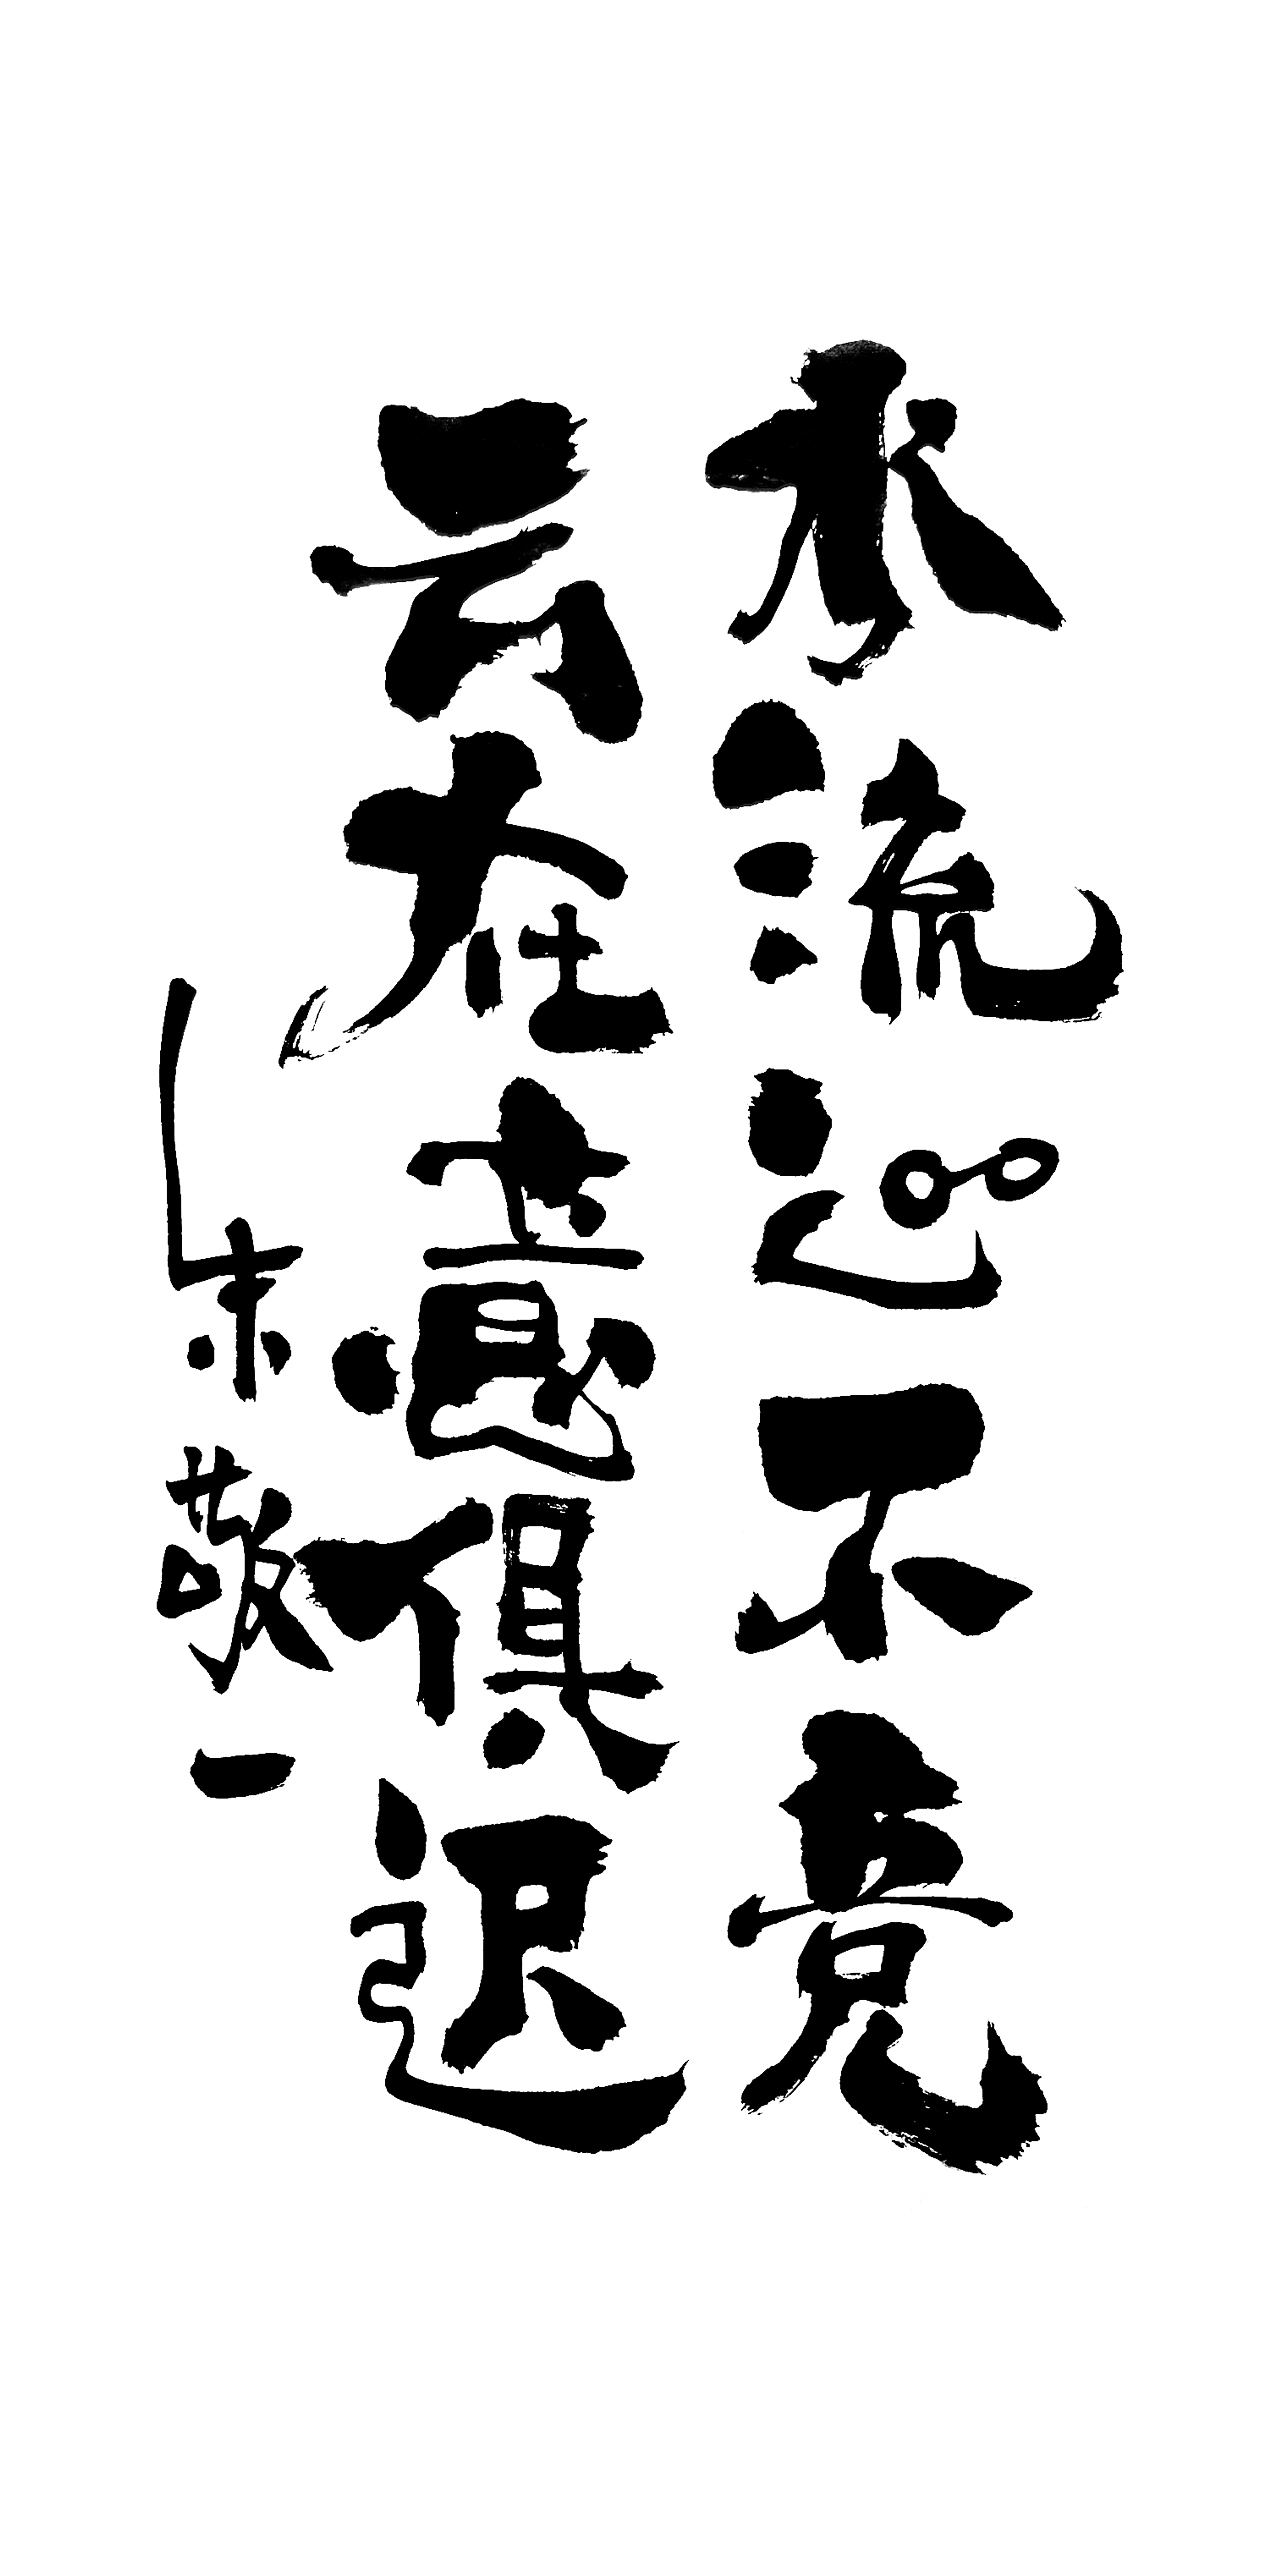 水流心不竞
云在意俱迟
朱敬一